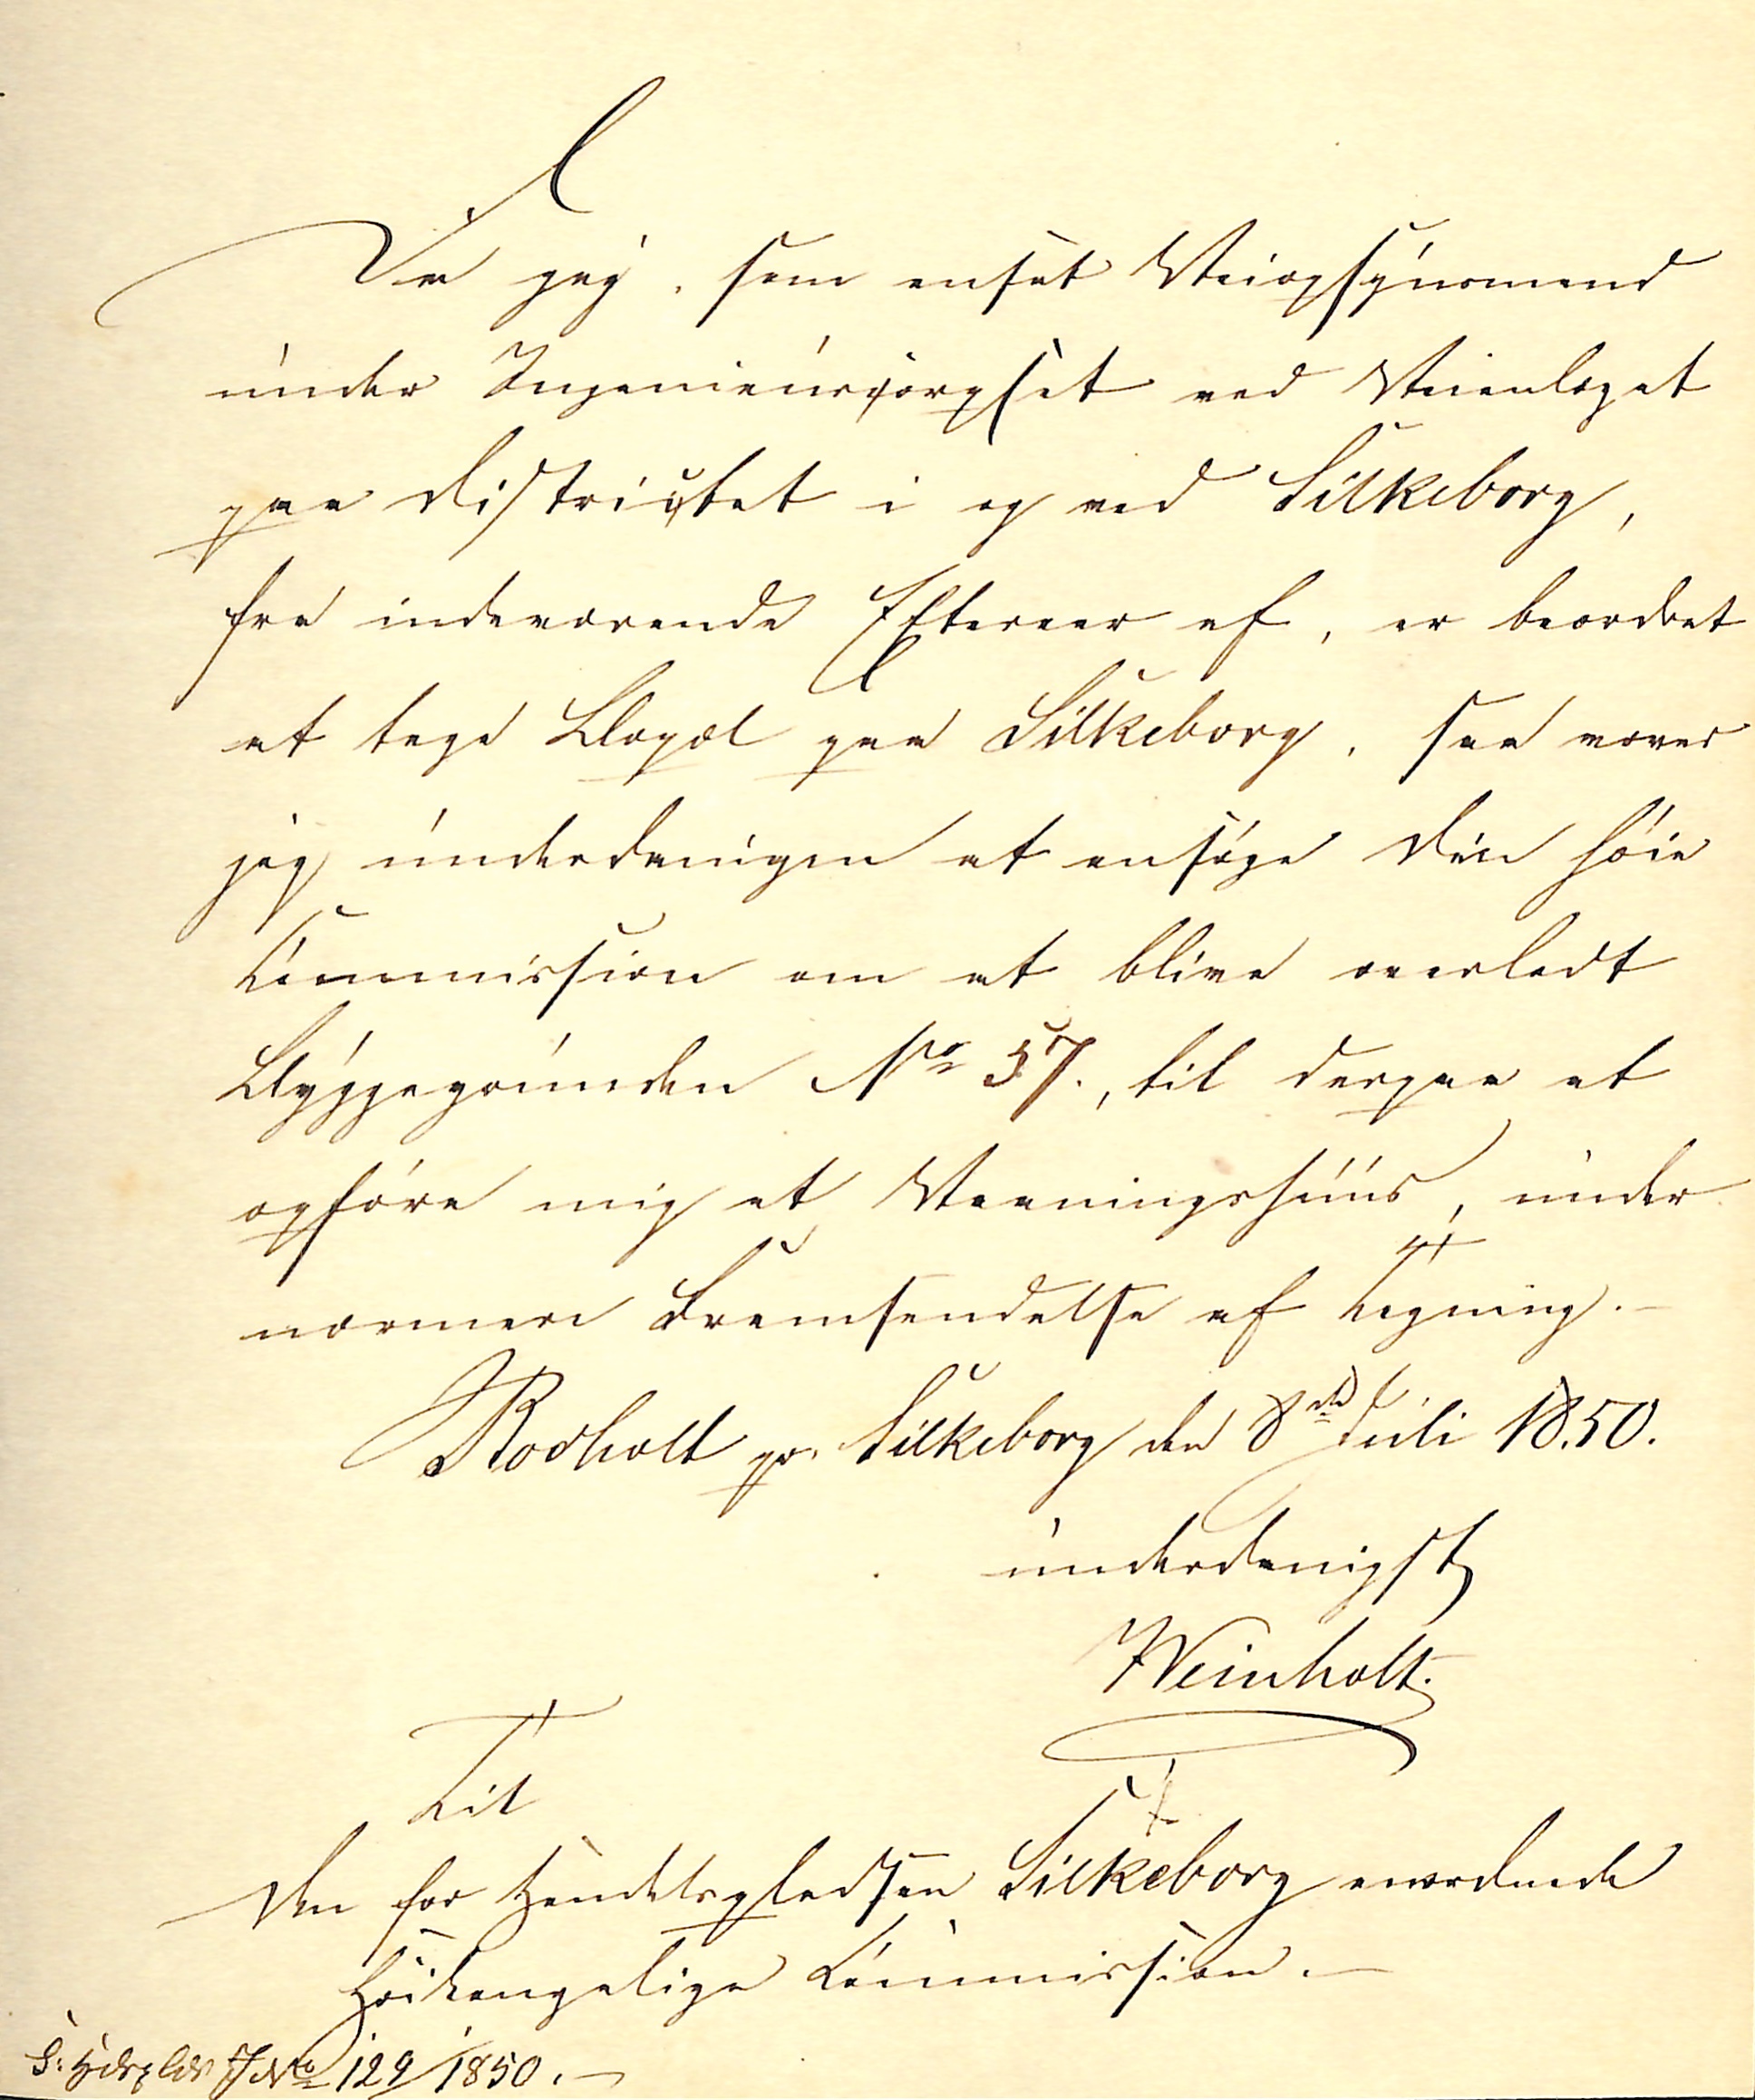 Da jeg, som ansat Veiopsynsmand
under Ingenieurcorpset ved Veianlæget
paa Districtet i og ved Silkeborg,
fra indeværende Efteraar af, er beordret
at tage Bopæl paa Silkeborg, saa vover
jeg underdanigen at ansøge den høie
Commission om at blive overladt
Byggegrunden No 57., til derpaa at
opføre mig et Vaaningshuus, under
nærmere Fremsendelse af Tegning.—
Rodholt pr. Silkeborg den 8de Juli 1850.
underdanigst
Weinholt.
Til
Den for Handelspladsen Silkeborg anordnede
Høikongelige Commission.—
No 129/1850.—